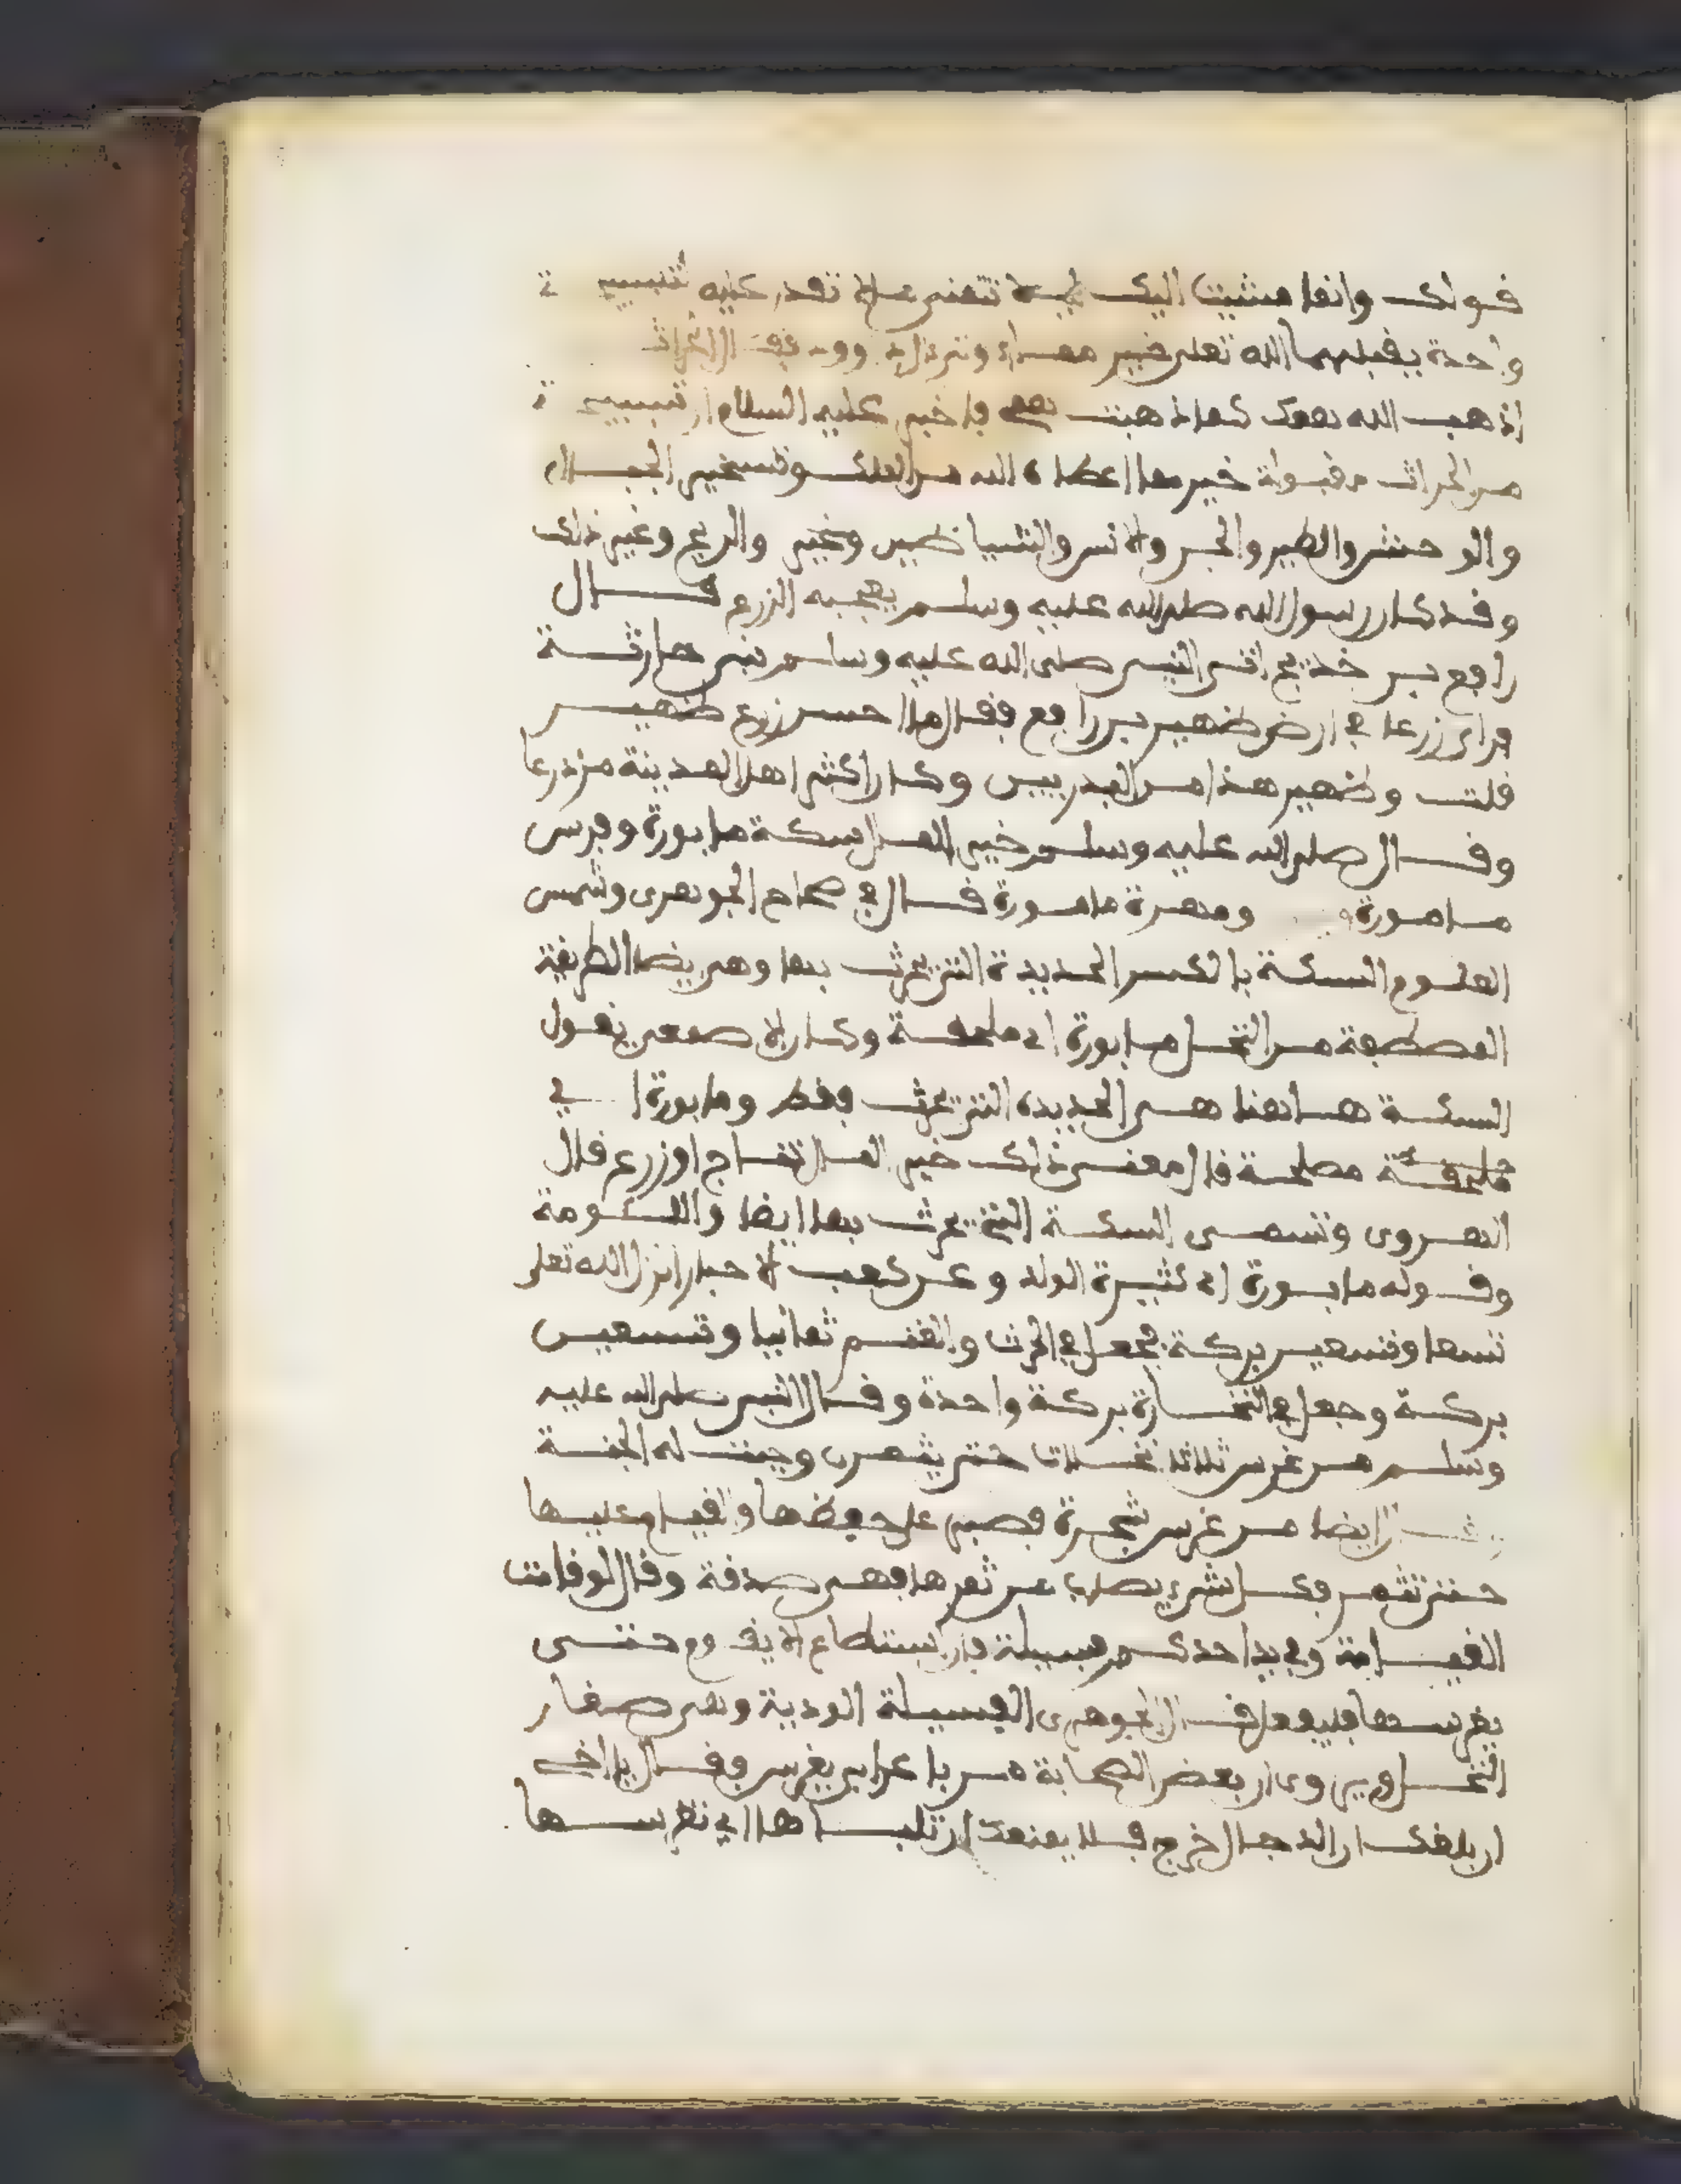 قولك وانما مشيت اليك ليلا تتمنى ما لا تقدر عليه تسبيحة
واحدة يقبلها الله تعلى خير مما اوتي ال داوود فقال الحراث
اذهب الله همك كما اذهبت همي فاخبر عليه السلام ان تسبيحة
من الحراث مقبولة خير مما اعطاه الله من الملك وتسخير الجبال
والوحش والطير والجن والانس والشياطين وغير والريح وغير ذلك
وقد كان رسول الله صلى الله عليه وسلم يعجبه الزرع قال
رافع بن خديج اتى النبي صلى الله عليه وسلم بني حارثة
فراى زرعا في ارض ظهير بن رافع فقال ما احسن زرع ظهير
قلت وظهير هذا من البدريين وكان اكثر اهل المدينة مزدرعا
وقال صلى الله عليه وسلم خير المال سكة مابورة وفرس
مامورة ومهرة مامورة قال في صحاح الجوهري وشمس
العلوم السكة بالكسر الحديدة التي يحرث بها وهي ايضا الطريقة
المصطفة من النخل مابورة اي ملحقة وكان الاصمعي يقول
السكة هاهنا هي الحديدة التي يحرث فقط ومابورة اي
ملحقة مصلحة قال معنى ذلك خير المال نتاج او زرع قال
الهروي وتسمى السكة التي يحرث بها ايضا واللكومة
وقوله مابورة اي كثيرة الولد وعن كعب الاحبار انزل الله تعلى
تسعا وتسعين بركة فجعل في الحرث والغنم ثمانيا وتسعين
بركة وجعل في التجارة بركة واحدة وقال النبي صلى الله عليه
وسلم من غرس ثلاث نخلات حتى يثمرن وجبت له الجنة
وقال ايضا من غرس شجرة فصبر على حفظها والقيام عليها
حتى تثمر فكل شيء يصاب من ثمرها فهي صدقة وقال لو قامت
القيامة وفي يد احدكم فسيلة فان استطاع الا يقوم حتى
يغرسها فليفعل قال الجوهري الفسيلة الودية وهي صغار
النخل ويروى ان بعض الصحابة مر باعرابي يغرس فقال يا اخي
ان بلغك ان الدجال خرج فلا يمنعك ان تلبسها اي تغرسها